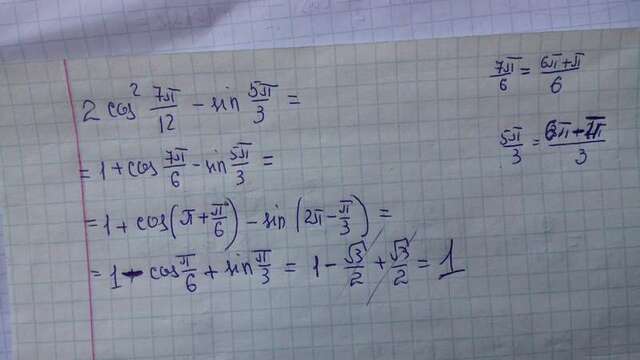 2 cos² 7π/12 - sin 5π/3 =
= 1 + cos 7π/6 - sin 5π/3 =
= 1 + cos(π + π/6) - sin(2π - π/3) =
= 1 - cos π/6 + sin π/3 = 1 - √3/2 + √3/2 = 1
7π/6 = 6π+π/6
5π/3 =